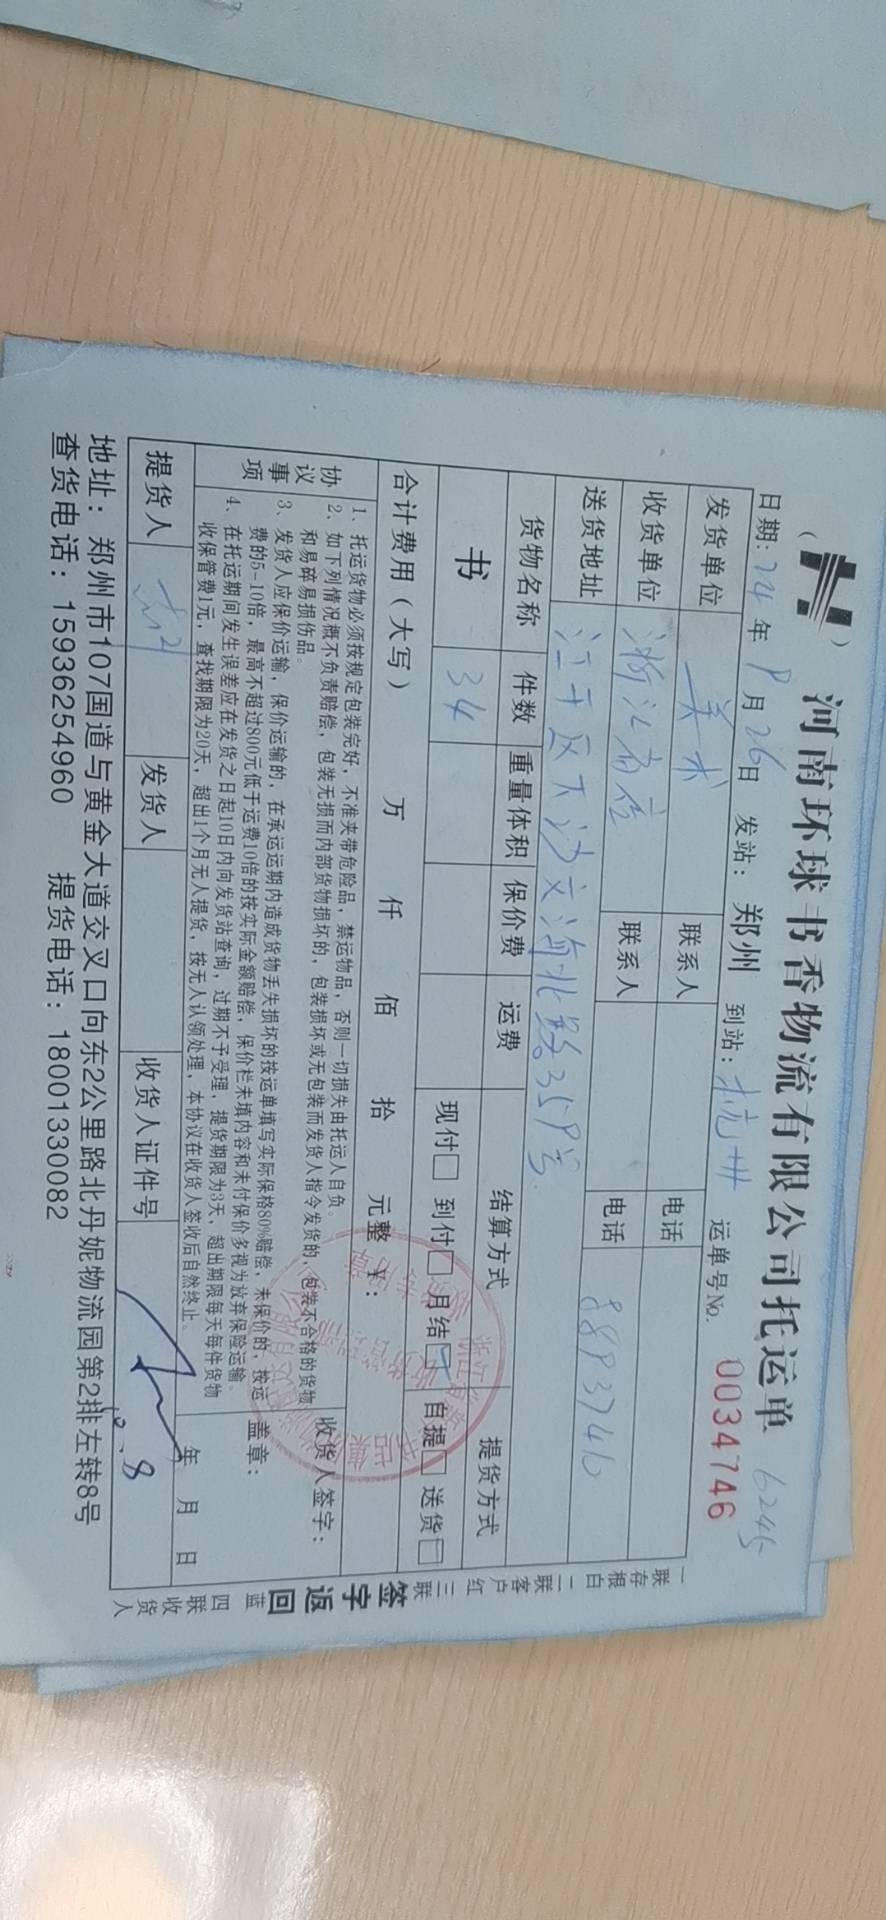 河南环球书香物流有限公司托运单 6245
日期: 24 年 8 月 26 日 发站: 郑州 到站: 杭州 运单号No. 0034746
发货单位 美术 联系人 电话
收货单位 浙江省店 联系人 电话 88837416
送货地址 江干区下沙文海北路359号
货物名称 件数 重量体积 保价费 运费 结算方式 提货方式
书 34 现付□ 到付□ 月结□ 自提□ 送货□
合计费用(大写) 万 仟 佰 拾 元整 ¥:
协议事项
1、托运货物必须按规定包装完好,不准夹带危险品,禁运物品,否则一切损失由托运人自负。
2、如下列情况概不负责赔偿,包装无损而内部货物损坏的,包装损坏或无包装而发货人指令发货的,包装不合格的货物
和易碎易损伤品。
3、发货人应保价运输,保价运输的,在承运期内造成货物丢失损坏的按运单填写实际保格80%赔偿,未保价的,按运
费的5-10倍,最高不超过800元低于运费10倍的按实际金额赔偿,保价栏未填内容和未付保价多视为放弃保险运输。
4、在托运期间发生误差应在发货之日起10日内向发货站查询,过期不予受理,提货期限为3天,超出期限每天每件货物
收保管费1元,查找期限为20天,超出1个月无人提货,按无人认领处理,本协议在收货人签收后自然终止。
收货人签字:
盖章:
年 月 日
提货人 发货人 收货人证件号
地址: 郑州市107国道与黄金大道交叉口向东2公里路北丹妮物流园第2排左转8号
查货电话: 15936254960 提货电话: 18001330082
一存根白 二客户红 三签字返回蓝 四收货人
联 联 联 联